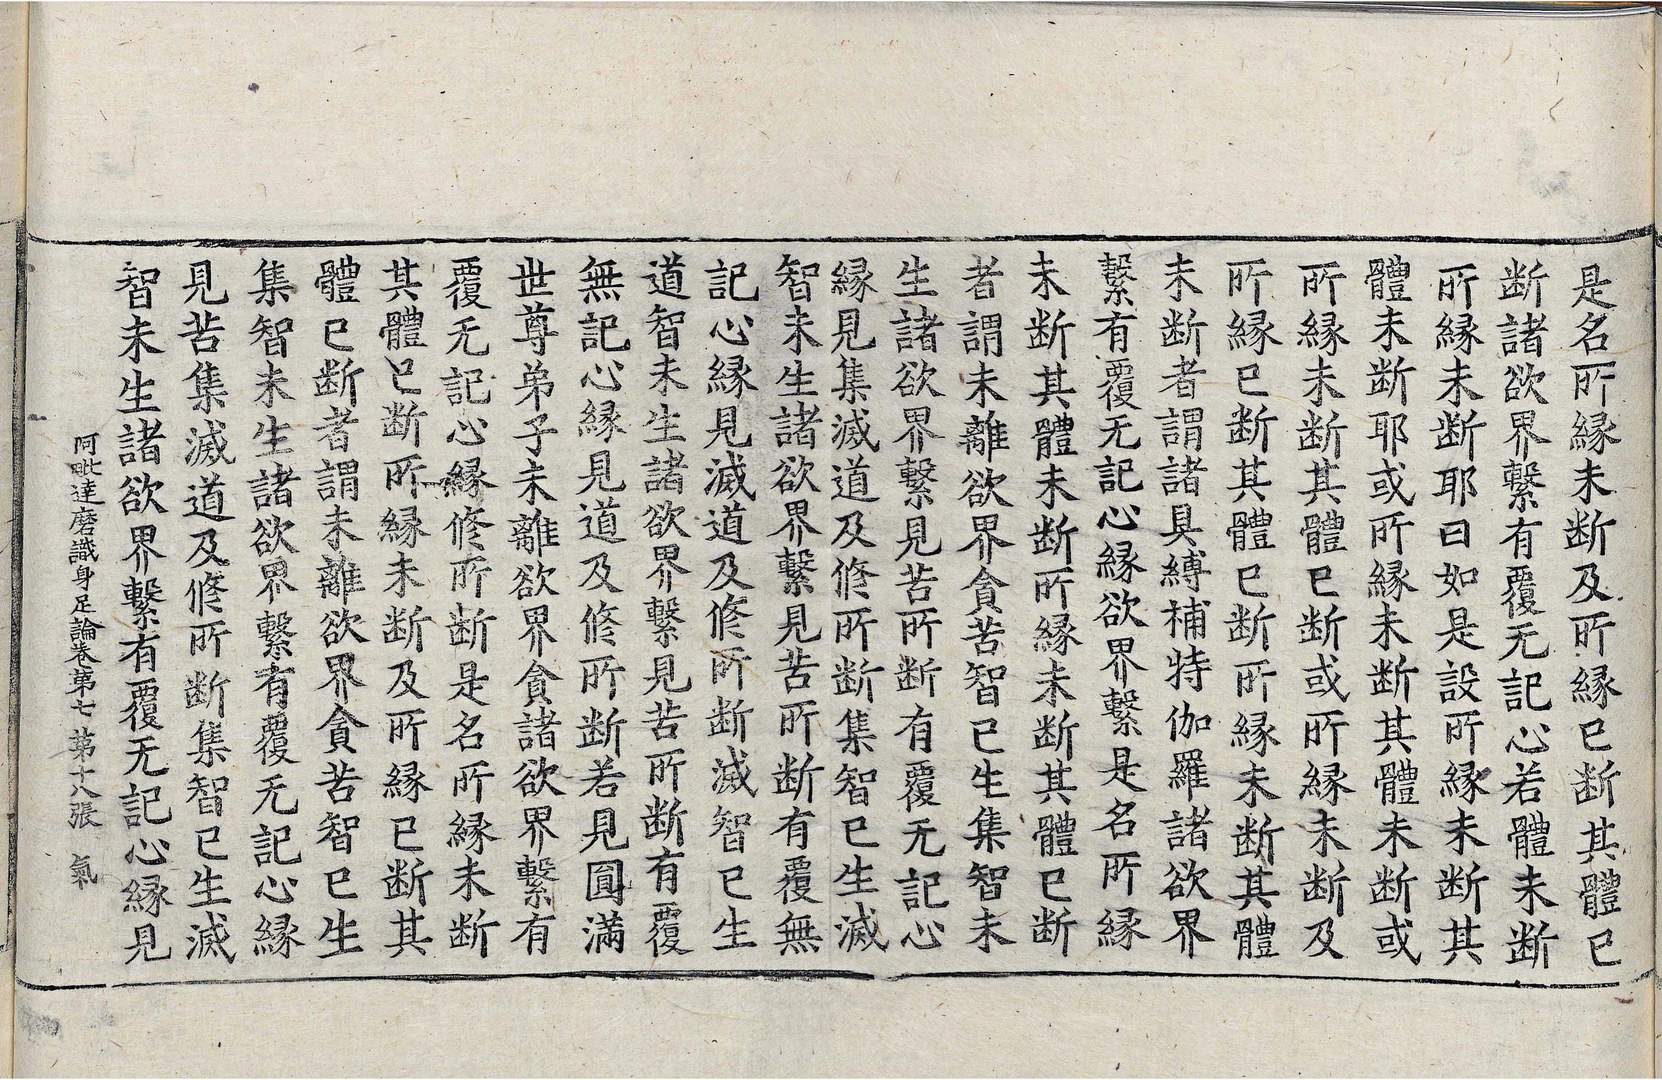 是名所縁未断及所縁已断其體已
断諸欲界繫有覆无記心若體未断
所縁未断耶曰如是設所縁未断其
體未断耶或所縁未断其體未断或
所縁未断其體已断或所縁未断及
所縁已断其體已断所縁未断其體
未断者謂諸具縛補特伽羅諸欲界
繫有覆无記心縁欲界繫是名所縁
未断其體未断所縁未断其體已断
者謂未離欲界貪苦智已生集智未
生諸欲界繫見苦所断有覆无記心
縁見集滅道及修所断集智已生滅
智未生諸欲界繫見苦所断有覆無
記心縁見滅道及修所断滅智已生
道智未生諸欲界繫見苦所断有覆
無記心縁見道及修所断若見圓滿
世尊弟子未離欲界貪諸欲界繫有
覆无記心縁修所断是名所縁未断
其體已断所縁未断及所縁已断其
體已断者謂未離欲界貪苦智已生
集智未生諸欲界繫有覆无記心縁
見苦集滅道及修所断集智已生滅
智未生諸欲界繫有覆无記心縁見
阿毗達磨識身足論卷第七 第十八張 氣